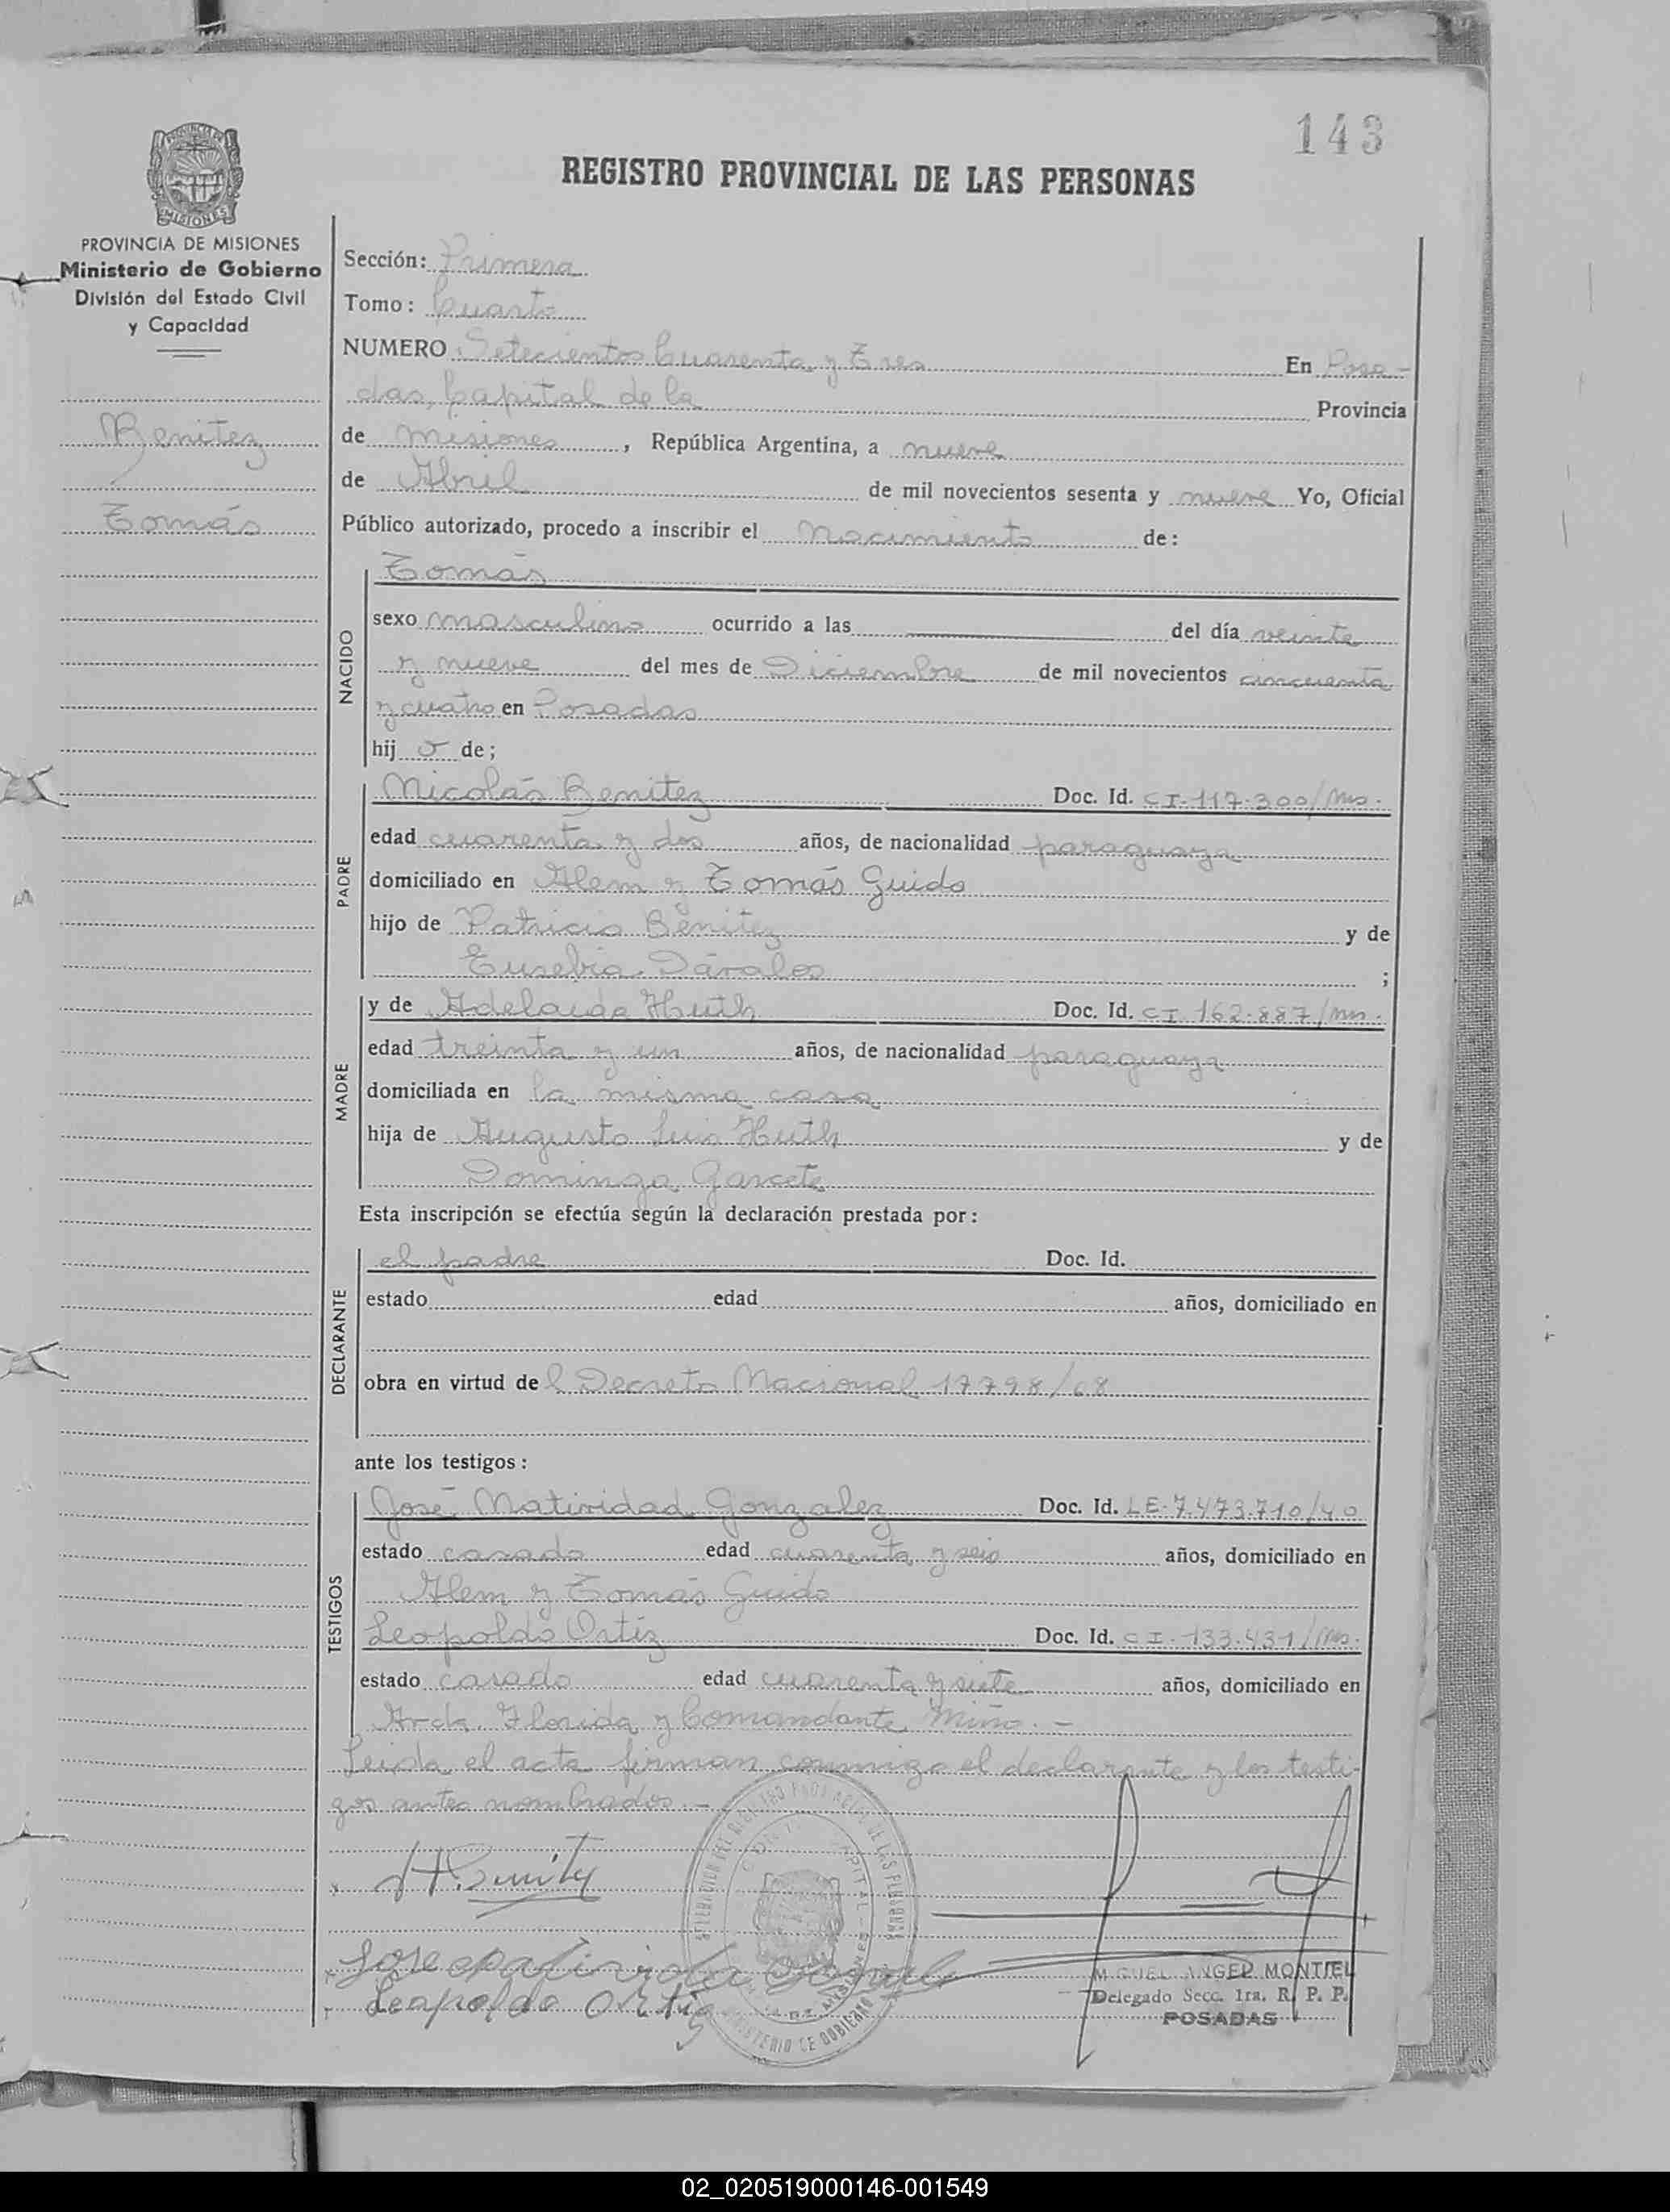 143
REGISTRO PROVINCIAL DE LAS PERSONAS
PROVINCIA DE MISIONES
Ministerio de Gobierno
División del Estado Civil
y Capacidad
Benitez
Tomás
Sección: Primera
Tomo: Cuarto
NUMERO Setecientos Cuarenta y Tres En Posa-
das, Capital de la Provincia
de Misiones, República Argentina, a nueve
de Abril de mil novecientos sesenta y nueve Yo, Oficial
Público autorizado, procedo a inscribir el Nacimiento de:
NACIDO
Tomás
sexo masculino ocurrido a las del día veinte
y nueve del mes de Diciembre de mil novecientos cincuenta
y cuatro en Posadas
hijo de;
PADRE
Nicolás Benitez Doc. Id. CI-117.300/Mns.
edad cuarenta y dos años, de nacionalidad paraguaya
domiciliado en Alem y Tomás Guido
hijo de Patricio Benitez y de
Eusebia Dávalos ;
MADRE
y de Adelaida Huth Doc. Id. CI 162.887/Mns.
edad treinta y un años, de nacionalidad paraguaya
domiciliada en la misma casa
hija de Augusto Luis Huth y de
Dominga Garcete
Esta inscripción se efectúa según la declaración prestada por:
DECLARANTE
el padre Doc. Id.
estado edad años, domiciliado en
obra en virtud del Decreto Nacional 17798/68
ante los testigos:
TESTIGOS
José Natividad Gonzalez Doc. Id. LE-7.473.710/40
estado casado edad cuarenta y seis años, domiciliado en
Alem y Tomás Guido
Leopoldo Ortiz Doc. Id. CI-133.431/Mns.
estado casado edad cuarenta y siete años, domiciliado en
Avda. Florida y Comandante Miño.-
Leida el acta firman conmigo el declarante y los testi-
gos antes nombrados.-
Leopoldo Ortiz
MIGUEL ANGEL MONTIEL
Delegado Secc. 1ra. R. P. P.
POSADAS
02_020519000146-001549